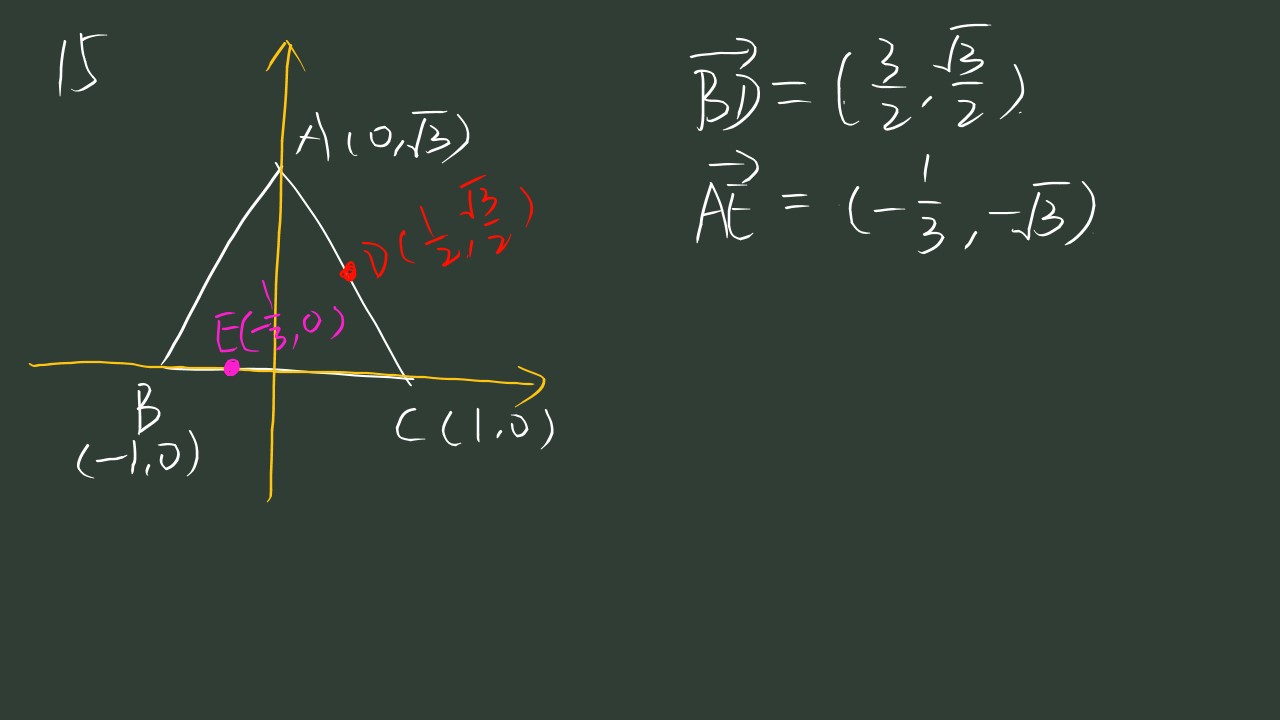 15
A(0,√3)
D(1/2,√3/2)
E(-1/3,0)
B
(-1,0)
C(1,0)
BD→=(3/2,√3/2)
AE→=(-1/3,-√3)